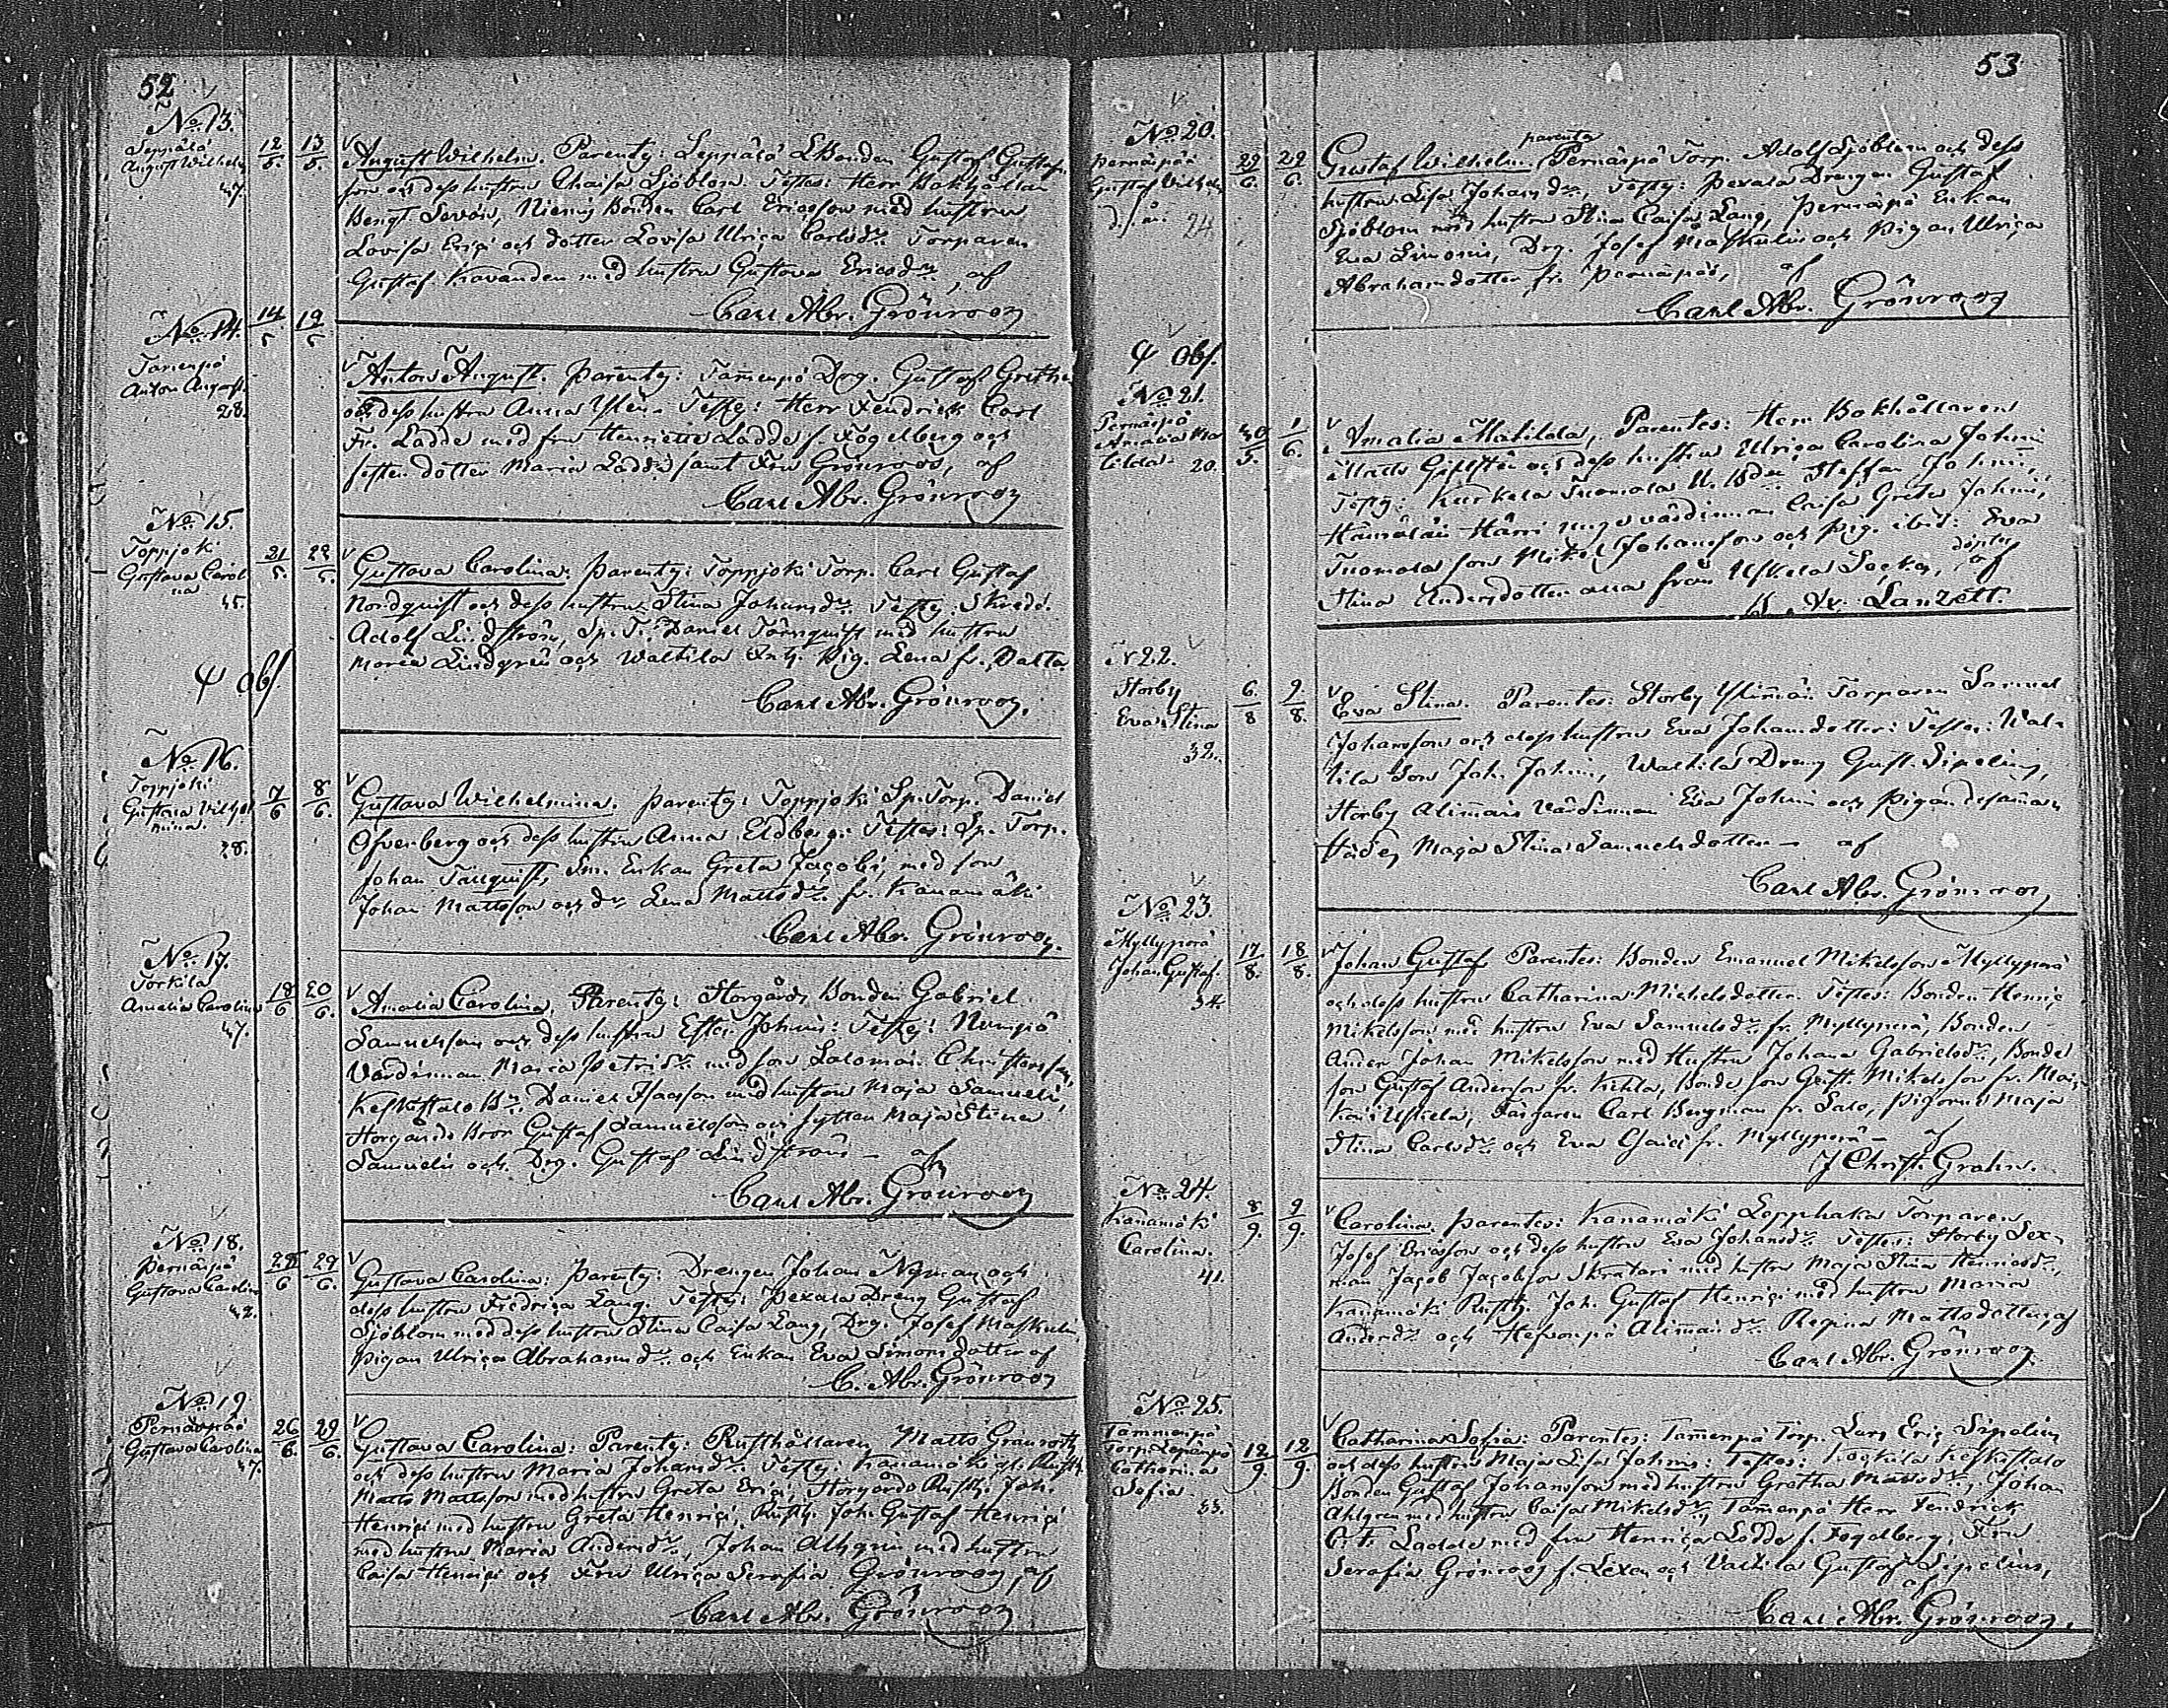 52
No 13.
Seppälä
August Wilhelm
47.
12/5. 13/5.
August Wilhelm. Parentes: Seppälä Bonden Gustaf Gustafs
son och dess hustru Chaisa Sjöblom. Testes: Herr Bokhållar
Bengt Levón, Niemis Bonden Carl Ericsson med hustru
Lovisa Erici och dotter Lovisa Ulrica Carlsdr Torparen
Gustaf Kavander med hustru Gustava Ericsdr, af
Carl Abr. Grönroos
No 14.
Tamenpä
Anton August.
28.
14/5 19/5
Anton August. Parentes: Tamenpä Drg. Gustaf
och dess hustru Anna Testes: Herr Fendrick Carl
Fr. Ladde med fru Henriette Ladde f. Fogelberg och
dotter Maria Ladde samt Fru Grönroos, af
Carl Abr. Grönroos
No 15.
Toppjoki
Gustava Caroli
na
45.
21/5. 22/5.
Gustava Carolina: Parentes: Toppjoki Torp. Carl Gustaf
Nordquist och dess hustru Stina Johansdr Testes: Skredd.
Adolf Lindström, Sp. T. Daniel Törnquist med hustru
Maria Lindgrén och Waltila Pig. Lena fr.
Carl Abr. Grönroos.
obs.
No 16.
Toppjoki
Gustava Vilhel
mina.
28.
7/6 8/6.
Gustava Wilhelmina. Parentes: Toppjoki Sp. Torp. Daniel
Ofvenberg och dess hustru Anna Eldberg: Testes: Sp. Torp.
Johan Tallquist, Enkan Greta Jacobi, med son
Johan Mattsson och dr Lena Mattsdr. fr. Kanamäki
Carl Abr. Grönroos.
No 17.
Torkila
Amalia Carolina
47.
18/6 20/6.
Amalia Carolina, Parentes: Storgårds Bonden Gabriel
Samuelsson och dess hustru Ester Johans: Testes: Numpä
Värdinnan Maria Petridr med son Salomon Christersson,
Keskustalo Bn. Daniel Isacsson med hustru Maja Samueli,
Storgårds Bror Gustaf Samuelsson och systern Maja Stina
Samuelis och Drg. Gustaf Lindström - af
Carl Abr. Grönroos
No 18.
Pernäspä
Gustava Carolin
42.
28/6 29/6.
Gustava Carolina: Parentes: Drengen Johan Nyman och
dess hustru Fredrica Lang. Testes: Pexala Dreng Gustaf
Sjöblom med dess hustru Stina Caisa Lang, Drg. Josef Maskulin
Pigan Ulrica Abrahamsdr. och Enkan Eva Simonsdotter af
C. Abr. Grönroos
No 19
Pernäspä
Gustava Carolina
47.
26/6. 29/6
Gustava Carolina: Parentes: Rusthållaren Matts Grönroos
och dess hustru Maria Johansdr. Testes: Kanamäki gl. Rusth.
Matts Mattsson med hustru Greta Erici, Storgårds Rusth. Joh.
Henrici med hustru Greta Henrici, Rusth. Joh. Gustaf Henrici
med hustru Maria Andersdr, Johan Ahlgrén med hustru
Caisa Henrici och Fru Ulrica Serafia Grönroos, af
Carl Abr. Grönroos
53
No 20.
Pernäspä
Gustaf Vilhelm
24
29/6. 29/6.
Gustaf Wilhelm. parentes Pernäspä Torp. Adolf Sjöblom och dess
hustru Lisa Johansdr, Testes: Pexala Drengen Gustaf
Sjöblom med hustru Stina Caisa Lang, Pernäspä Enkan
Eva Simonis, Drg. Josef Maskulin och Pigan Ulrica
Abrahamsdotter fr. Pernäspä, af
Carl Abr. Grönroos
obs.
No 21.
Pernäspä
Amalia Ma
tilda 20.
30/5. 1/6.
Amalia Matilda, Parentes: Herr Bokhållaren
Matts och dess hustru Ulrica Carolina Johani
Testes: Kurkela Tuomola Bden Steffan Johani,
Hämäläis Härri unga värdinnan Caisa Greta Johani,
Tuomola son Mikel Johansson och pig. ibid: Eva
Stina Andersdotter alla från Uskela Socken, döptes af
Lanzett.
N 22.
Storby
Eva Stina
32.
6/8 9/8.
Eva Stina. Parentes: Storby Torparen Samuel
Johansson och dess hustru Eva Johansdotter: Testes: Wal-
tila Son Joh. Johani, Waltila Dreng Gust. Sipelius,
Storby Alimäis Värdinnan Eva Johani och Pigan
städes Maja Stina Samuelsdotter - af
Carl Abr. Grönroos
No 23.
Myllyperä
Johan Gustaf.
34.
17/8. 18/8.
Johan Gustaf Parentes: Bonden Emanuel Mikelsson Myllyperä
och dess hustru Catharina Michelsdotter. Testes: Bonden Henric
Mikelsson med hustru Eva Samuelsdr fr. Myllyperä, Bonden
Anders Johan Mikelsson med Hustru Johana Gabrielsdr, Bonde
son Gustaf Andersson fr. Kihla, Bonde son Gust. Mikelsson fr.
Uskela, Färgaren Carl Bergman fr. Salo, Pigorna Maja
Stina Carlsdr och Eva fr. Myllyperä - af
J Christ. Grahn.
No 24.
Kanamäki
Carolina.
41.
8/9. 9/9.
Carolina, Parentes: Kanamäki Lepphaka Torparen
Josef Ericsson och dess hustru Eva Johansdr Testes: Storby Sex-
man Jacob Jacobsson Skratari med hustru Maja Stina Henricsdr,
Kanamäki Rusth. Joh. Gustaf Henrici med hustru Maria
Andersdr och Alimäis dr Regina Mattsdotter, af
Carl Abr. Grönroos
No 25.
Tammenpä
Torp.
Catharina
Sofia.
33.
12/9. 12/9.
Catharina Sofia: Parentes: Tamenpä Torp. Lars Eric Sipelius
och dess hustru Maja Lisa Johans: Testes: Keskustalo
Bonden Gustaf Johansson med hustru Gretha Mattsdr, Johan
Ahlgren med hustru Caisa Mikelsdr, Tamenpä Herr Fendrick
C. F. Ladde med fru Henrica Ladde f. Fogelberg, Fru
Serafia Grönroos f. Lexen och Valtila Gustaf Sipelius,
af
Carl Abr. Grönroos.